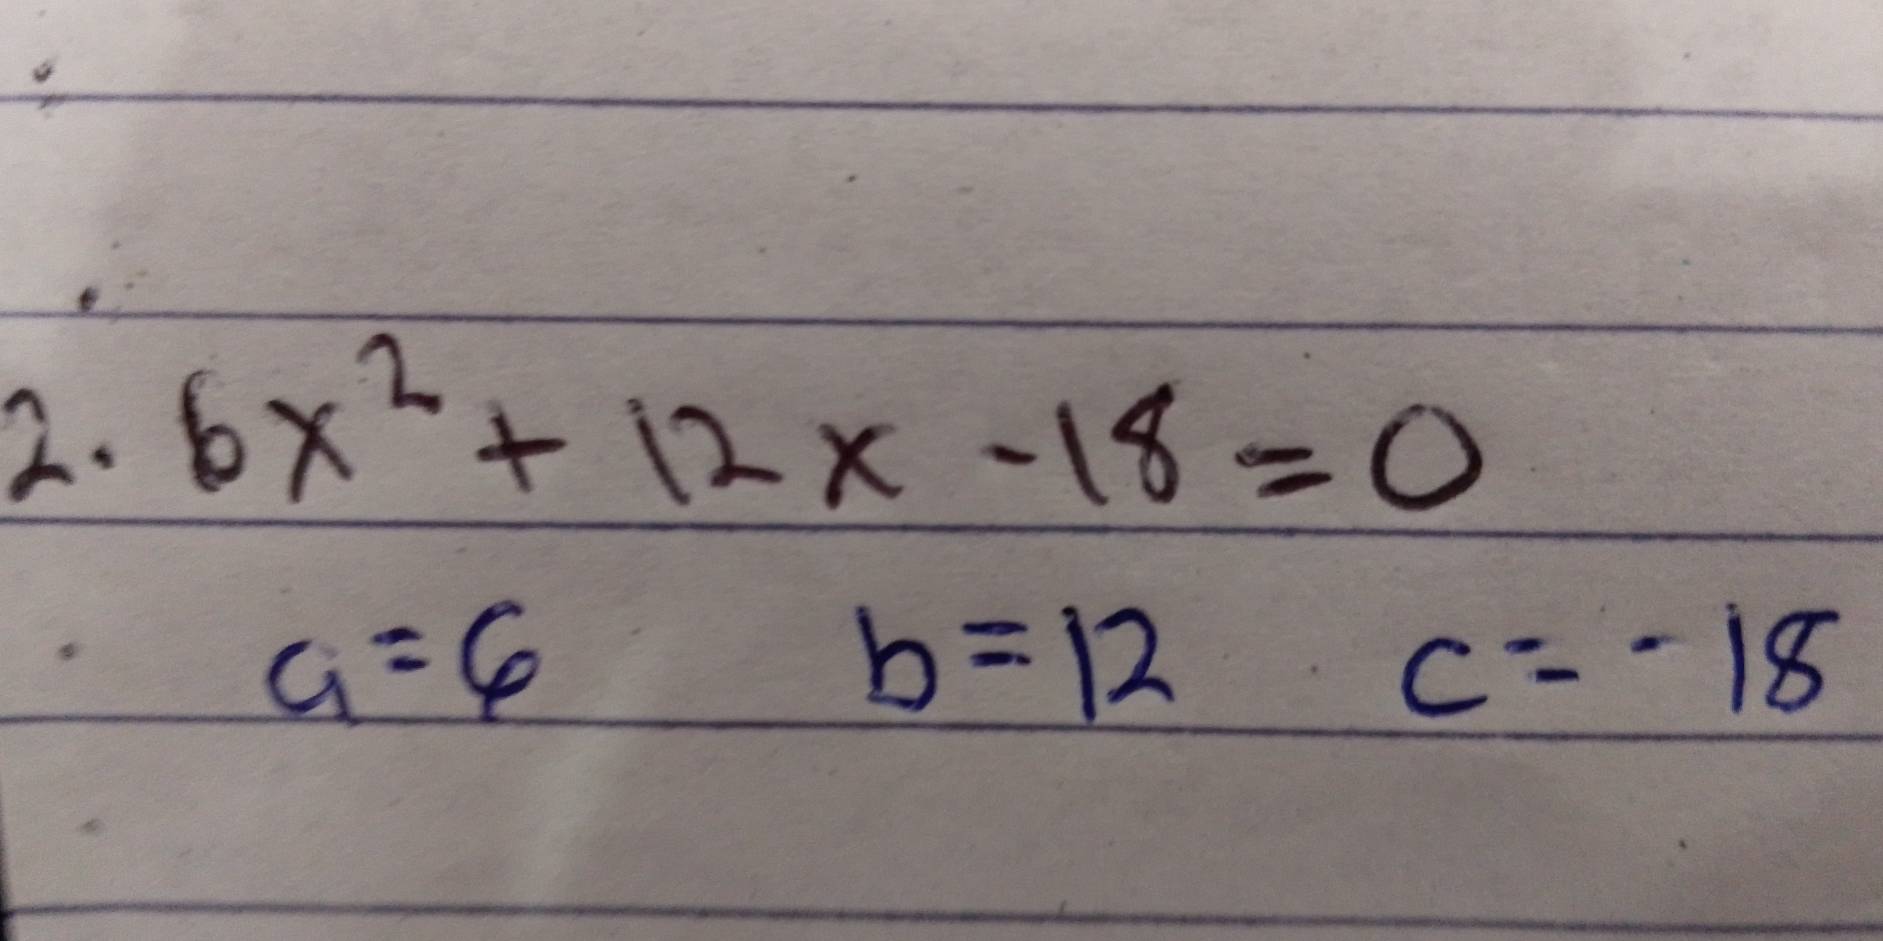 2. 6x² + 12x - 18 = 0
a = 6 b = 12 c = - 18